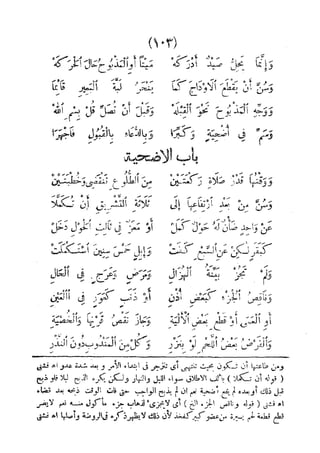 (١٠٣)
وَإِنَّمَا يَحِلُّ صَيْدٌ أَدْرَكَهُ مَيْتًا أَوِ الْمَذْبُوحُ حَالَ الْحَرَكَهْ
وَسُنَّ أَنْ يَقْطَعَ الْأَوْدَاجَ كَمَا يَنْحَرُ لَبَّةَ الْبَعِيرِ قَائِمَا
وَوَجِّهِ الْمَذْبُوحَ نَحْوَ الْقِبْلَهْ وَقَبْلَ أَنْ تُصَلِّ قُلْ بِسْمِ اللهْ
وَسَمِّ فِي أُضْحِيَّةٍ وَكَبِّرَا وَبِالدُّعَاءِ بِالْقَبُولِ فَاجْهَرَا
باب الأضحية
وَوَقْتُهَا قَدْرُ صَلَاةِ رَكْعَتَيْنْ مِنَ الطُّلُوعِ تَنْقَضِي وَخُطْبَتَيْنْ
وَسُنَّ مِنْ بَعْدِ ارْتِفَاعِهَا إِلَى ثَلَاثَةِ التَّشْرِيقِ أَنْ تُكَمَّلَا
عَنْ وَاحِدٍ ضَأْنٌ لَهُ حَوْلٌ كَمَلْ أَوْ مَعَزٌ فِي ثَالِثِ الْحَوْلِ دَخَلْ
كَبَقَرٍ لٰكِنْ عَنِ السَّبْعِ كَفَتْ وَإِبِلٌ خَمْسَ سِنِينَ اسْتَكْمَلَتْ
وَلَمْ تَجُزْ بَيِّنَةُ الْهُزَالِ وَمَرَضٍ وَعَرَجٍ فِي الْحَالِ
وَنَاقِصُ الْجُزْءِ كَبَعْضِ أُذْنِ أَوْ ذَنَبٍ كَعَوَرٍ فِي الْعَيْنِ
أَوِ الْعَمَى أَوْ قَطْعِ بَعْضِ الْأَلْيَةِ وَجَازَ نَقْصُ قَرْنِهَا وَالْخُصْيَةِ
وَالْفَرْضُ بَعْضُ اللَّحْمِ لَوْ بِنَزْرِ وَكُلْ مِنَ الْمَنْدُوبِ دُونَ النَّذْرِ
ومن علامتها أن تكون بحيث تنتهي أى تتوفر فى ابتداء الأمر وبعد شدة عدو اه فشنى
(قوله أن تكملا:) كلامه الاطلاق سواء الليل والنهار ولكن يكره الذبح ليلا فلو ذبح
قبل ذلك أو بعده لم يقع أضحية نعم ان لم يذبح الواجب حتى فات الوقت ذبحه بعد قضاء
اه فشنى (قوله وناقص الجزء الخ) أى لايجزى لذهاب جزء مأكول منه نعم لايضر
قطع قطعة لحم يسيرة من عضو كبير كفخذ لأن ذلك لايظهر ذكره فى الروضة وأصلها اه فشنى